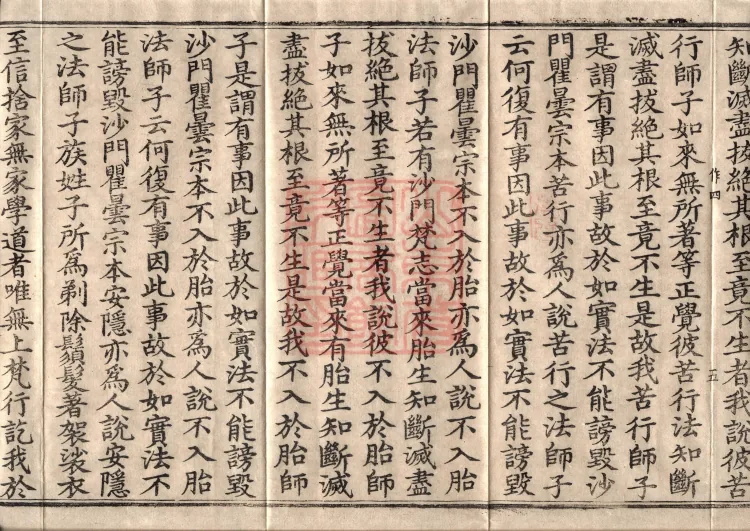 知斷滅盡拔絕其根至竟不生者我說彼苦
作四
五
行師子如來無所著等正覺彼苦行法知斷
滅盡拔絕其根至竟不生是故我苦行師子
是謂有事因此事故於如實法不能謗毀沙
門瞿曇宗本苦行亦為人說苦行之法師子
云何復有事因此事故於如實法不能謗毀
沙門瞿曇宗本不入於胎亦為人說不入胎
法師子若有沙門梵志當來胎生知斷滅盡
拔絕其根至竟不生者我說彼不入於胎師
子如來無所著等正覺當來有胎生知斷滅
盡拔絕其根至竟不生是故我不入於胎師
子是謂有事因此事故於如實法不能謗毀
沙門瞿曇宗本不入於胎亦為人說不入胎
法師子云何復有事因此事故於如實法不
能謗毀沙門瞿曇宗本安隱亦為人說安隱
之法師子族姓子所為剃除鬚髮著袈裟衣
至信捨家無家學道者唯無上梵行訖我於